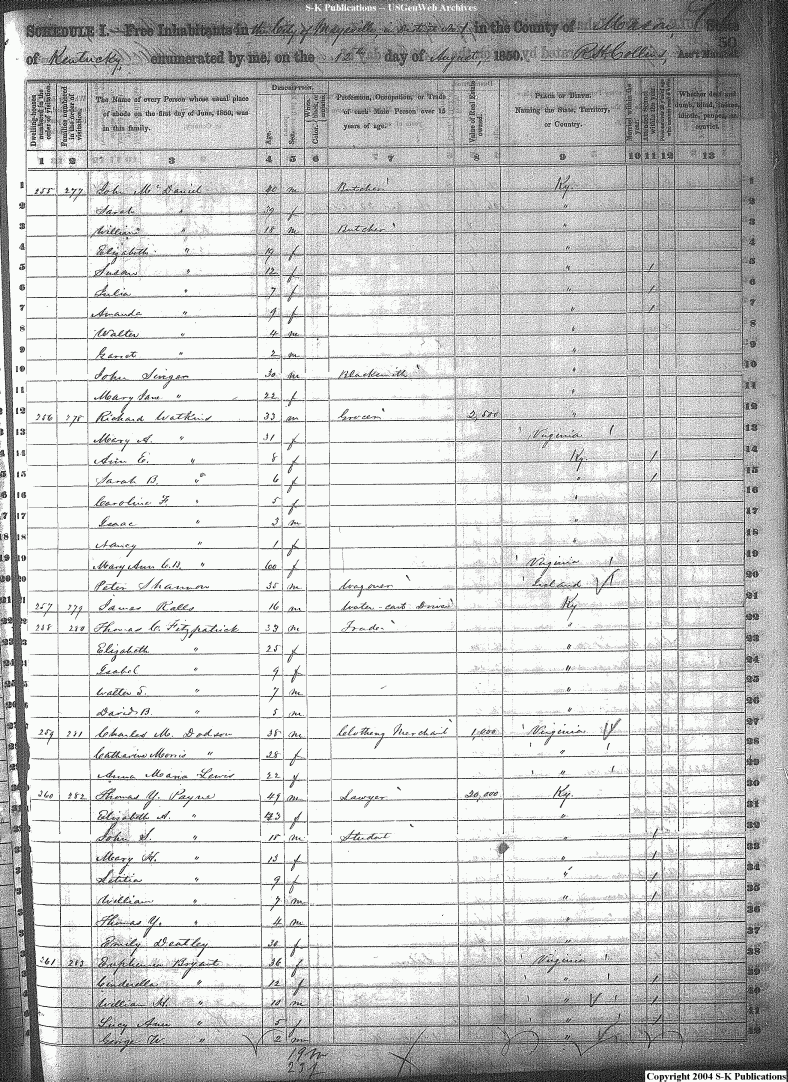 S-K Publications -- USGenWeb Archives
SCHEDULE I.—Free Inhabitants in the City of Maysville in the County of Mason State
of Kentucky enumerated by me, on the 12th day of August, 1850. R H Collins, Ass't Marshal. 50
Dwelling-houses numbered in the order of visitation. Families numbered in the order of visitation. The Name of every Person whose usual place of abode on the first day of June, 1850, was in this family. DESCRIPTION. Age. Sex. Color, Profession, Occupation, or Trade of each Male Person over 15 years of age. Value of Real Estate owned. PLACE OF BIRTH. Naming the State, Territory, or Country. Married within the year. Whether deaf and dumb, blind, insane, idiotic, pauper, or convict.
1 2 3 4 5 6 7 8 9 10 11 12 13
1 255 277 John McDaniel 40 m Butcher Ky. 1
2 Sarah " 39 f " 2
3 William " 18 m Butcher " 3
4 Elizabeth " 19 f " 4
5 Susan " 12 f " 1 5
6 Julia " 7 f " 1 6
7 Amanda " 9 f " 1 7
8 Walter " 4 m " 8
9 Garret " 2 m " 9
10 John Singer 30 m Blacksmith " 10
11 Mary Jane " 22 f " 11
12 256 278 Richard Watkins 33 m Grocer 2,500 " 12
13 Mary A. " 31 f Virginia 13
14 Ann E. " 8 f Ky. 1 14
15 Sarah B. " 6 f " 1 15
16 Caroline F. " 5 f " 16
17 Isaac " 3 m " 17
18 Nancy " 1 f " 18
19 Mary Ann C.B. " 60 f Virginia 19
20 Peter Shannon 35 m Wagoner 20
21 257 279 James Ralls 16 m Water-cart Driver Ky 21
22 258 280 Thomas C. Fitzpatrick 33 m Trader " 22
23 Elizabeth " 25 f " 23
24 Isabel " 9 f " 24
25 Walter S. " 7 m " 25
26 David B. " 5 m " 26
27 259 281 Charles M. Dodson 38 m Clothing Merchant 1,000 Virginia 27
28 Catharine Morris " 28 f " 28
29 Anna Maria Lewis 22 f " 29
30 260 282 Thomas Y. Payne 49 m Lawyer 20,000 Ky. 30
31 Elizabeth A. " 43 f " 31
32 John S. " 15 m Student " 1 32
33 Mary H. " 13 f " 1 33
34 Letitia " 9 f " 1 34
35 William " 7 m " 1 35
36 Thomas Y. " 4 m " 36
37 Emily Deatley 30 f " 37
38 261 283 Euphemia Bryant 36 f Virginia 38
39 Cinderella " 12 f " 1 39
40 William H. " 10 m " 1 40
41 Lucy Ann " 5 f " 1 41
42 George W. " 2 m " 42
19 m
23 f
Copyright 2004 S-K Publications